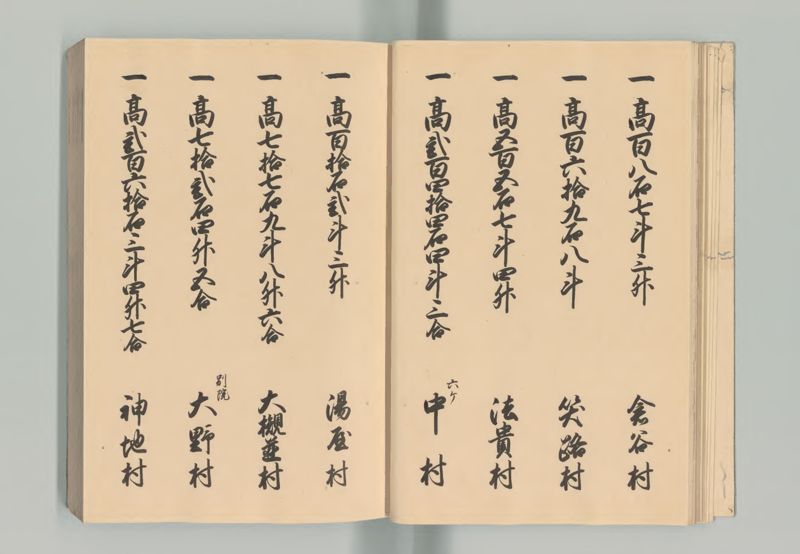 一 高百八石七斗三升 倉谷村
一 高百六拾九石八斗 笑路村
一 高五百五石七斗四升 法貴村
一 高弐百四拾四石四斗三合 六ケ 中村
一 高百拾石弐斗三升 湯屋村
一 高七拾七石九斗八升六合 大槻並村
一 高七拾弐石四升五合 別院 大野村
一 高弐百六拾石三斗四升七合 神地村